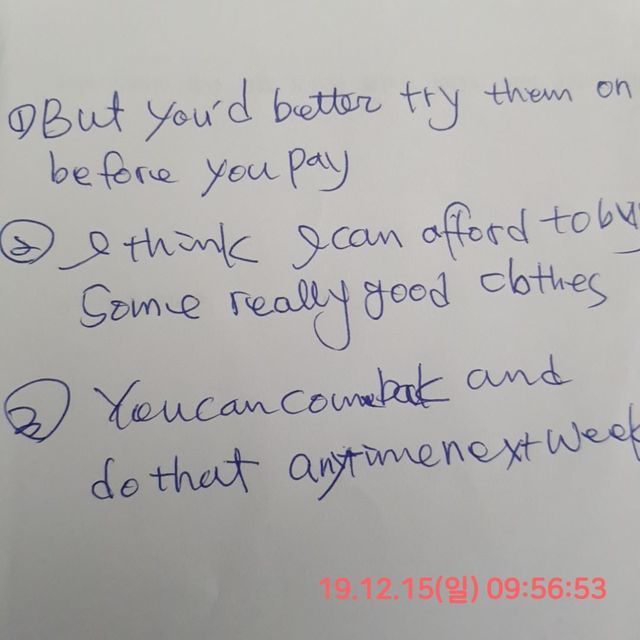 ① But you'd better try them on
before you pay
② I think I can afford to buy
Some really good clothes
③ You can come back and
do that anytime next week
19.12.15(일) 09:56:53